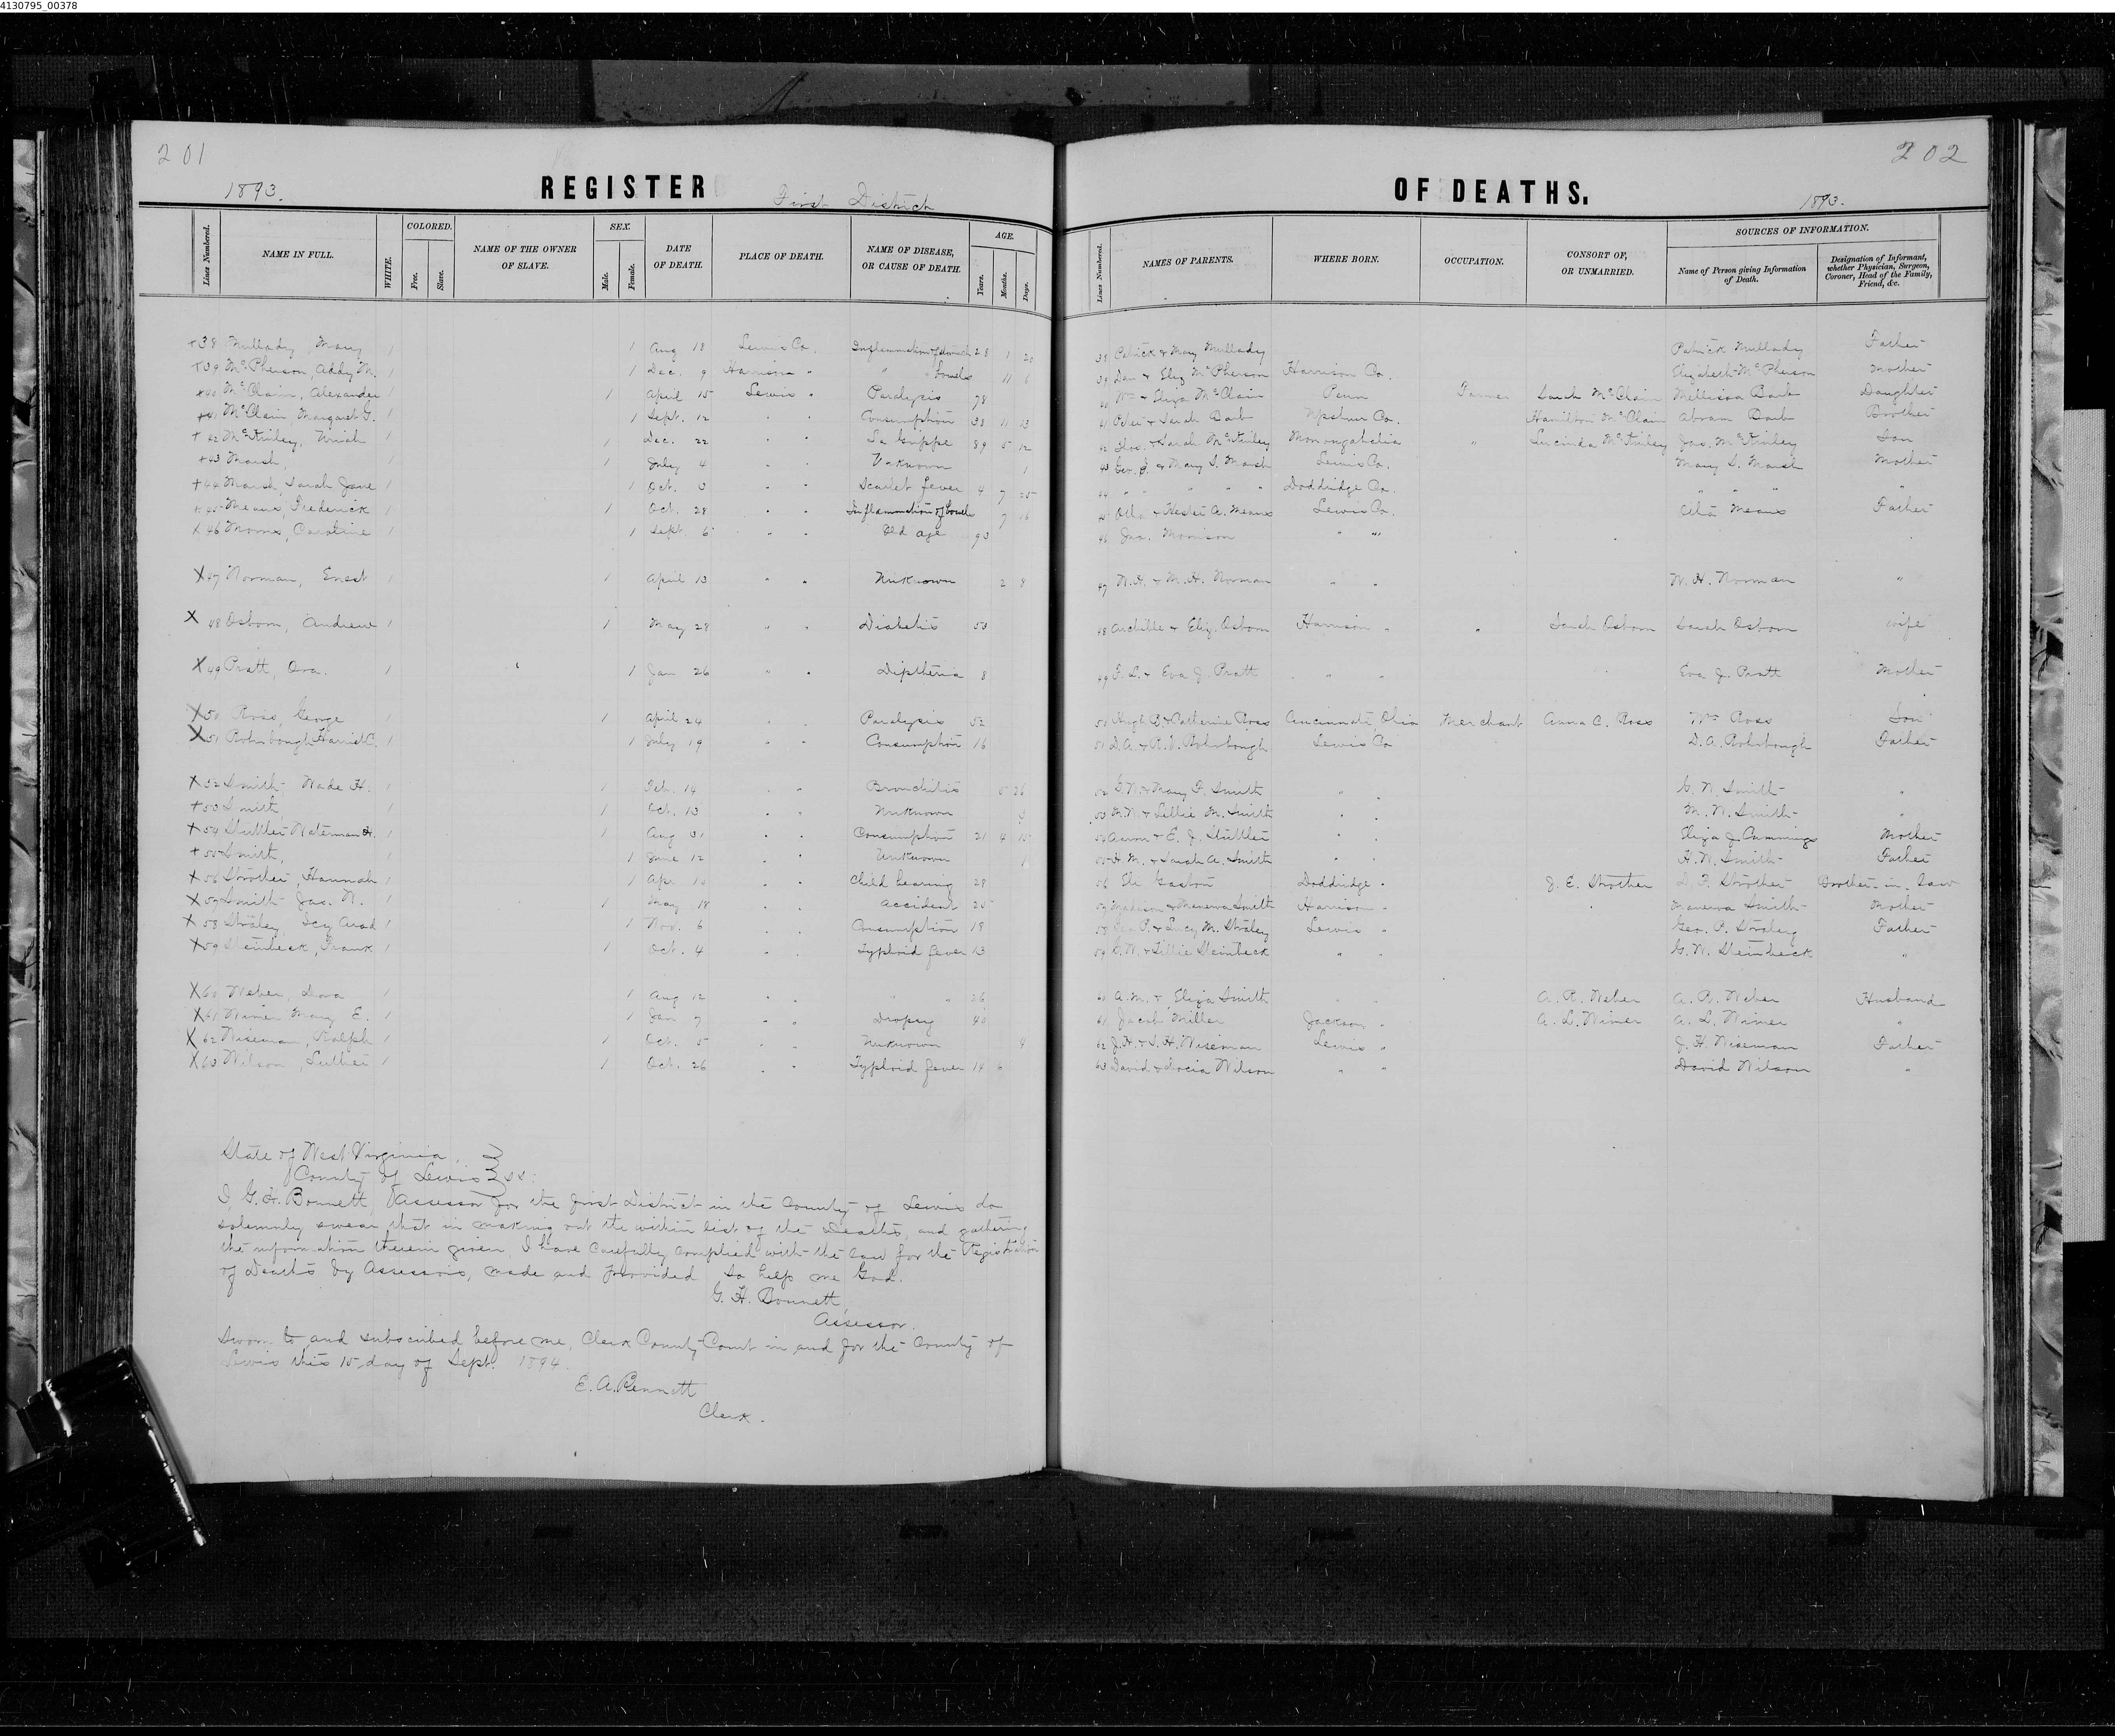 4130795_00378
201
202
1893.
REGISTER
First District
OF DEATHS.
1893.
Lines Numbered. NAME IN FULL. WHITE. COLORED. Free. Slave. NAME OF THE OWNER OF SLAVE. SEX. Male. Female. DATE OF DEATH. PLACE OF DEATH. NAME OF DISEASE, OR CAUSE OF DEATH. AGE. Years. Months. Days.
Lines Numbered. NAMES OF PARENTS. WHERE BORN. OCCUPATION. CONSORT OF, OR UNMARRIED. SOURCES OF INFORMATION. Name of Person giving Information of Death. Designation of Informant, whether Physician, Surgeon, Coroner, Head of the Family, Friend, &c.
+38 Mullady, Mary 1 1 Aug 18 Lewis Co. Inflammation of stomach 28 1 20 38 Patrick & Mary Mullady Patrick Mullady Father
+39 McPherson, Addy M. 1 1 Dec. 9 Harrison " " " bowels 11 6 39 Dan & Eliz McPherson Harrison Co. Elizabeth McPherson Mother
+40 McClain, Alexander 1 1 April 15 Lewis " Paralysis 78 40 Wm & Eliza McClain Penn Farmer Sarah McClain Mellissa Barb Daughter
+41 McClain, Margaret G. 1 1 Sept. 12 " " Consumption 38 11 13 41 Peter & Sarah Barb Upshur Co. Hamilton McClain Abram Barb Brother
+42 McKinley, Uriah 1 1 Dec. 22 " " La Grippe 89 5 12 42 Thos. & Sarah McKinley Monongahalia " Lucinda McKinley Jas. McKinley Son
+43 Marsh, 1 1 July 4 " " Unknown 1 43 Geo. J. & Mary S. Marsh Lewis Co. Mary S. Marsh Mother
+44 Marsh, Sarah Jane 1 1 Oct. 3 " " Scarlet fever 4 7 25 44 " " " " " Doddridge Co. " " " "
+45 Means, Frederick 1 1 Oct. 28 " " Inflammation of bowels 7 16 45 Otha & Hester A. Means Lewis Co. Otha Means Father
X46 Morris, Caroline 1 1 Sept. 6 " " Old age 93 46 Jas. Morrison " "
X47 Norman, Enest 1 1 April 13 " " Unknown 2 8 47 W. H. & M. H. Norman " " W. H. Norman "
X 48 Osborn, Andrew 1 1 May 28 " " Diabetis 53 48 Archible & Eliz. Osborn Harrison " " Sarah Osborn Sarah Osborn wife
X49 Pratt, Ora. 1 1 Jan 26 " " Diptheria 8 49 F. L. & Eva J. Pratt " " Eva J. Pratt Mother
X50 Ross, George 1 1 April 24 " " Paralysis 52 50 Hugh B & Catherine Ross Cincinnati Ohio Merchant Anna C. Ross Wm Ross Son
X51 Rohrbough Harriet C. 1 1 July 19 " " Consumption 16 51 D. A. & R. V. Rohrbough Lewis Co D. A. Rohrbough Father
X52 Smith, Wade H. 1 1 Feb. 14 " " Bronchitis 5 26 52 G. W. & Mary F. Smith " " G. W. Smith "
+53 Smith, 1 1 Oct. 13 " " Unknown 3 53 M. W. & Lillie M. Smith " " M. W. Smith "
X54 Stuttler Waterman H. 1 1 Aug 31 " " Consumption 21 4 15 54 Aaron & E. J. Stuttler " " Eliza J. Cummings Mother
+55 Smith, 1 1 June 12 " " Unknown 1 55 H. M. & Sarah A. Smith " " H. W. Smith Father
X56 Strother, Hannah 1 1 Apr 10 " " Child bearing 28 56 Eli Gaston Doddridge " J. E. Strother D. F. Strother Brother-in-law
X57 Smith Jas. N. 1 1 May 18 " " Accident 25 57 Madison & Menerva Smith Harrison " Manerva Smith Mother
X58 Straley, Icy Arad 1 1 Nov. 6 " " Consumption 18 58 Geo P. & Lucy M. Straley Lewis " Geo. P. Straley Father
X59 Steinbeck, Frank 1 1 Oct. 4 " " Typhoid fever 13 59 G. W. & Lillie Steinbeck " " G. W. Steinbeck "
X60 Weber, Dora 1 1 Aug 12 " " " " 26 60 A. M. & Eliza Smith " A. R. Weber A. R. Weber Husband
X61 Wimer Mary E. 1 1 Jan 7 " " Dropsy 40 61 Jacob Miller Jackson " A. L. Wimer A. L. Wimer "
X 62 Wiseman, Ralph 1 1 Oct. 5 " " Unknown 9 62 J. H. & S. H. Wiseman Lewis " J. H. Wiseman Father
X63 Wilson, Luther 1 1 Oct. 26 " " Typhoid fever 14 6 63 David & Wilson " " David Wilson "
State of West Virginia,
County of Lewis ss:
I, G. H. Bonnett, Assessor for the first District in the County of Lewis do
solemnly swear that in making out the within list of the Deaths, and gathering
the information therein given, I have carefully complied with the law for the Registration
of Deaths by Assessors, made and provided so help me God.
G. H. Bonnett,
Assessor.
Sworn to and subscribed before me, Clerk County Court in and for the County of
Lewis this 15 day of Sept. 1894.
E. A. Bennett
Clerk.